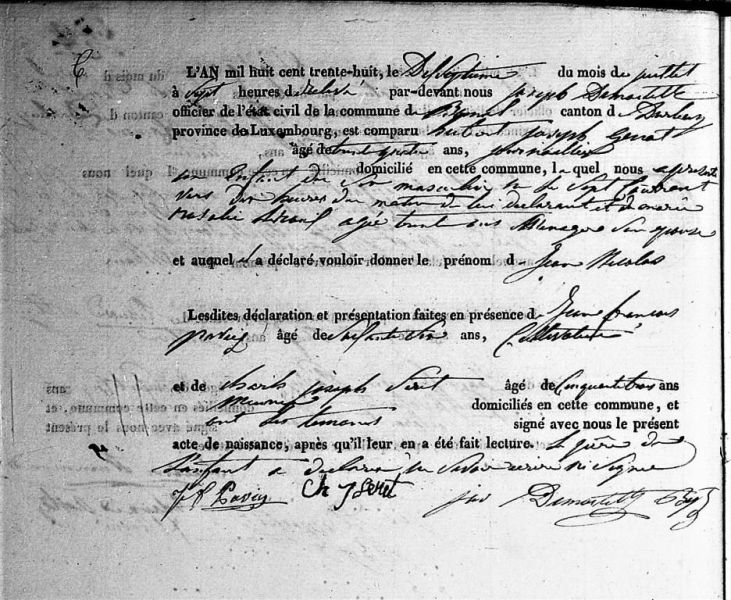 L'AN mil huit cent trente-huit, le Dix septieme du mois de juillet
à sept heures du par-devant nous joseph Demortelle
officier de l'état civil de la commune de canton d Durbuy
province de Luxembourg, est comparu hubert joseph
âgé de trente quatre ans, journallier
domicilié en cette commune, lequel nous a presenté
un Enfant du Sex masculin né le Sept Courant
vers Dix heures du matin de lui declarant et de marie
agée trente ans Menagere Son epouse
et auquel il a déclaré vouloir donner le prénom d Jean Nicolas
Lesdites déclaration et présentation faites en présence d Jean francois
pavieg âgé de Soixante ans, Cultivateur
et de charle joseph Seret âgé de Cinquante trois ans
meunier domiciliés en cette commune, et
ont les temoins signé avec nous le présent
acte de naissance, après qu'il leur en a été fait lecture. Le père de
L'enfant a declaré ne Savoir ecrire ni Signer
Ch J Seret par